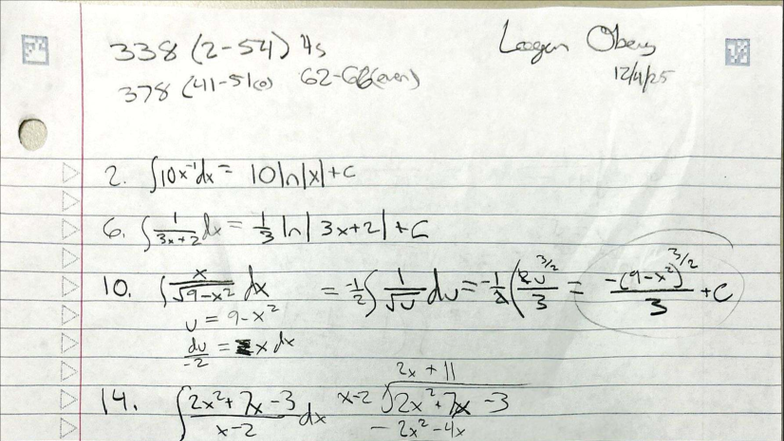 338 (2-54) 4s
378 (41-51o) 62-66(even)
12/4/25
2. ∫10x⁻¹dx = 10ln|x|+C
6. ∫1/(3x+2) dx = 1/3 ln|3x+2|+C
10. ∫x/√(9-x²) dx = -1/2 ∫1/√u du = -1/2 (2u^(3/2)/3 = -(9-x²)^(3/2)/3 + C
u = 9-x²
du/-2 = x dx
2x + 11
14. ∫(2x²+7x-3)/(x-2) dx x-2 √2x²+7x-3
- 2x²-4x